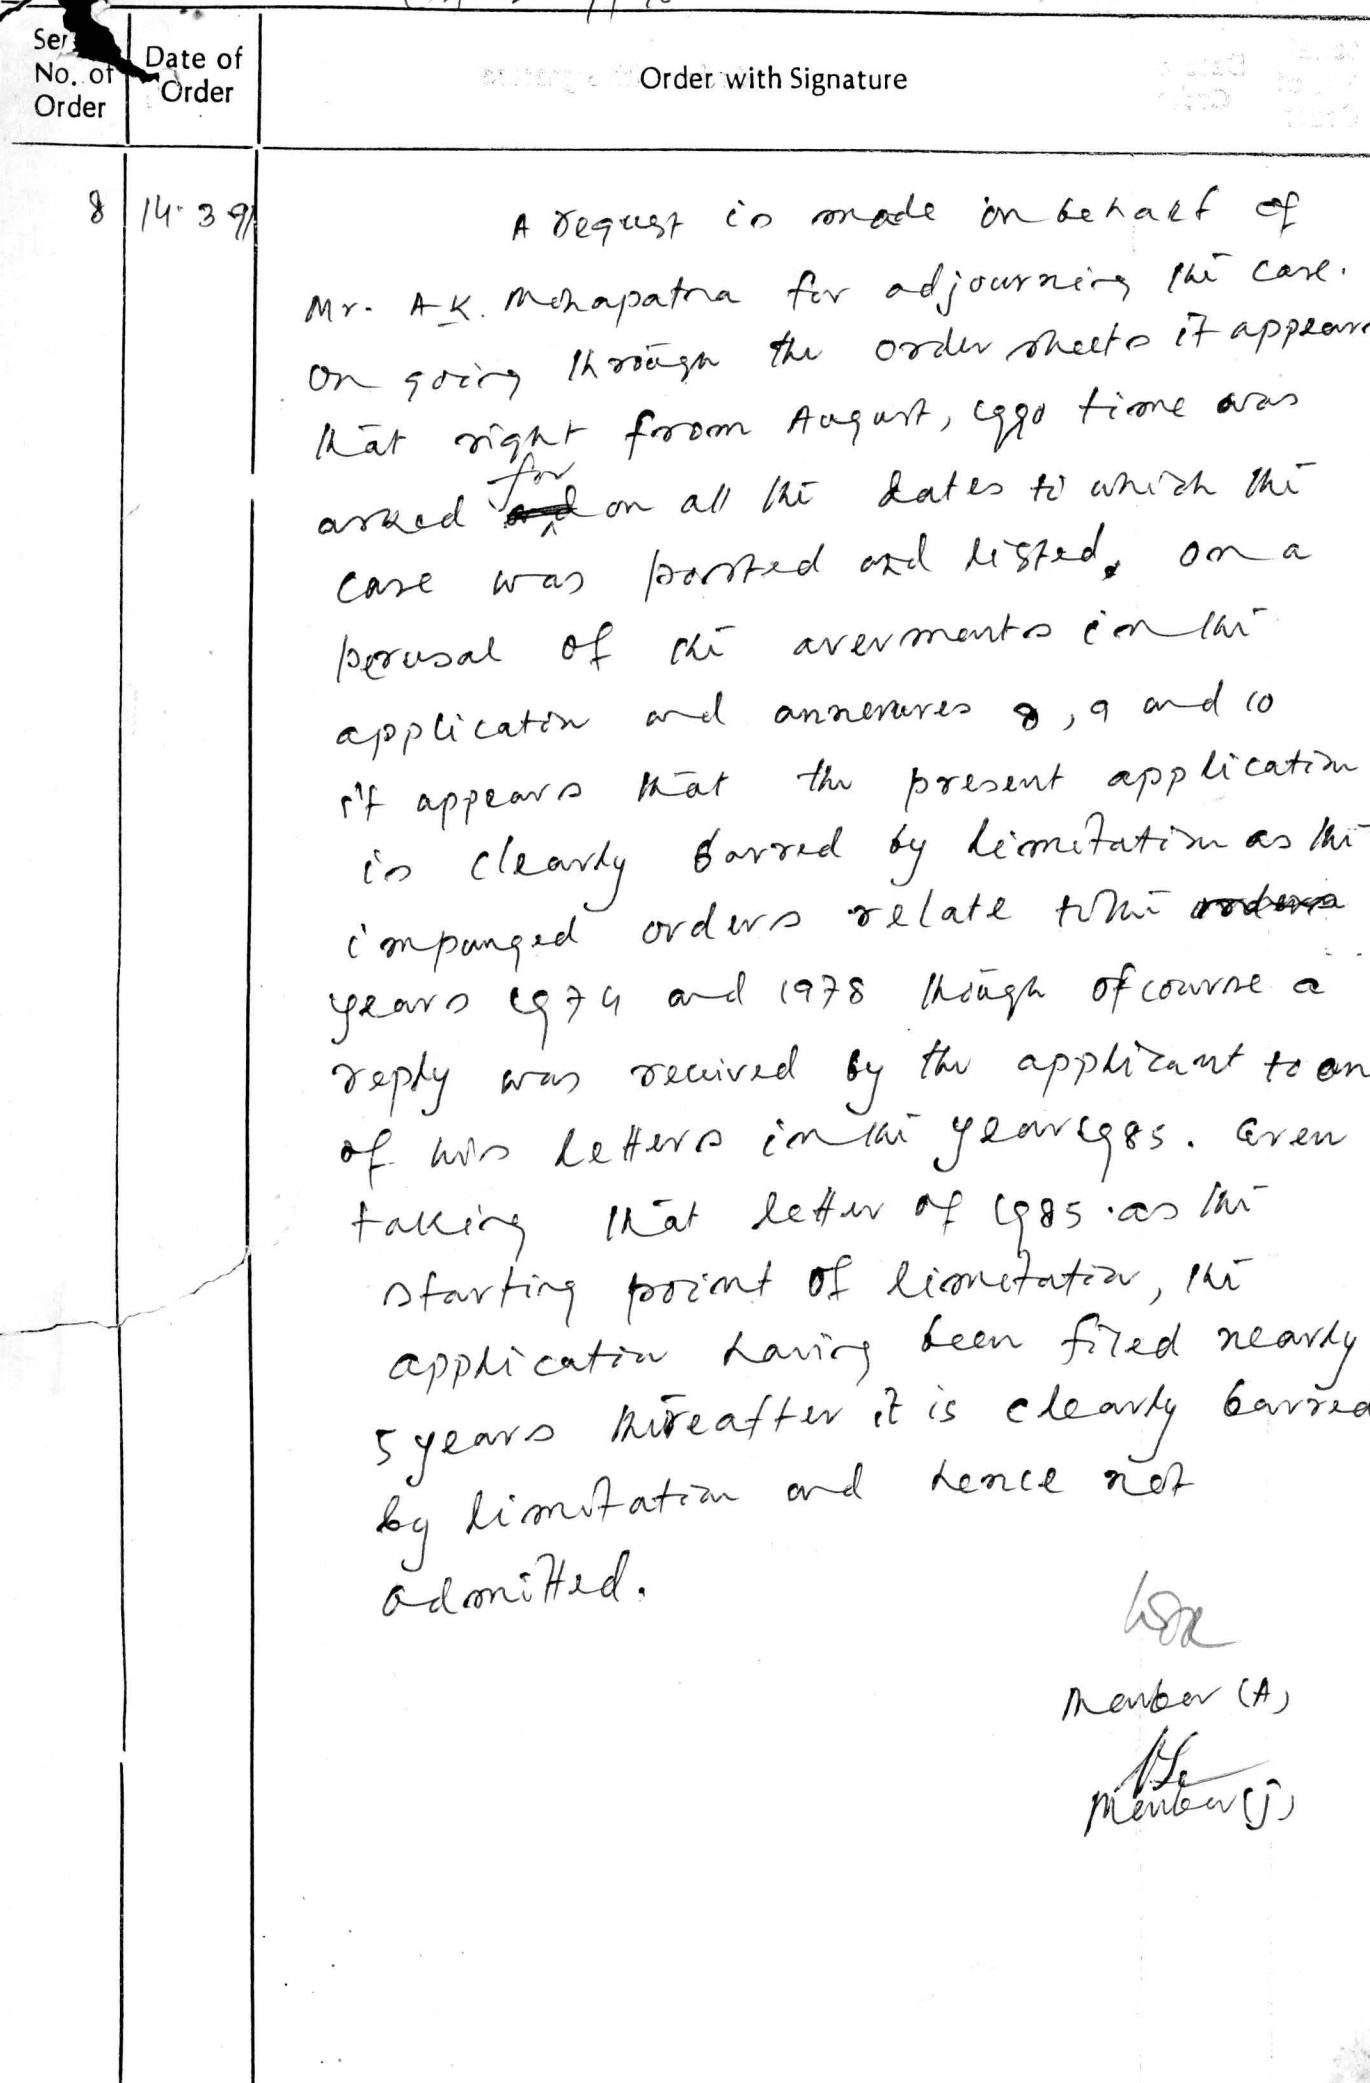 Ser
No. of
Order
Date of
Order
Order with Signature
8 14.3.91
A request is made on behalf of
Mr. A.K. Mohapatra for adjourning the case.
On going through the order sheets it appears
that right from August, 1990 time was
asked for on all the dates to which the
case was posted and listed. On a
perusal of the averments in the
application and annexures 8, 9 and 10
it appears that the present application
is clearly barred by limitation as the
impunged orders relate to the orders
years 1974 and 1978 though of course a
reply was received by the applicant to on
of his letters in the year 1985. Even
taking that letter of 1985 as the
starting point of limitation, the
application having been filed nearly
5 years thereafter it is clearly barred
by limitation and hence not
admitted.
Member (A)
Member (J)